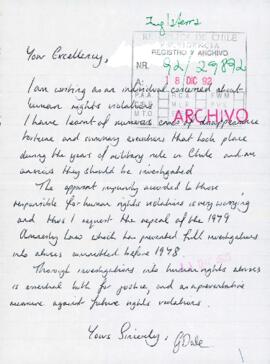 Inglaterra
REPUBLICA DE CHILE
PRESIDENCIA
REGISTRO Y ARCHIVO
NR. 92/29892
A: 18 DIC 92
P.A.A. R.C.A. F.W.M.
M.L.P.
M.T.O.
ARCHIVO
Your Excellency,
I am writing as an individual concerned about
human rights violations.
I have learnt of numerous cases of disappearance
torture and summary executions that took place
during the years of military rule in Chile and am
anxious they should be investigated.
The apparent impunity accorded to those
responsible for human rights violations is very worrying
and thus I request the repeal of the 1979
Amnesty Law which has prevented full investigations
into abuses committed before 1978.
Thorough investigations into human rights abuses
is essential both for justice, and as a preventative
measure against future rights violations.
Yours Sincerely,